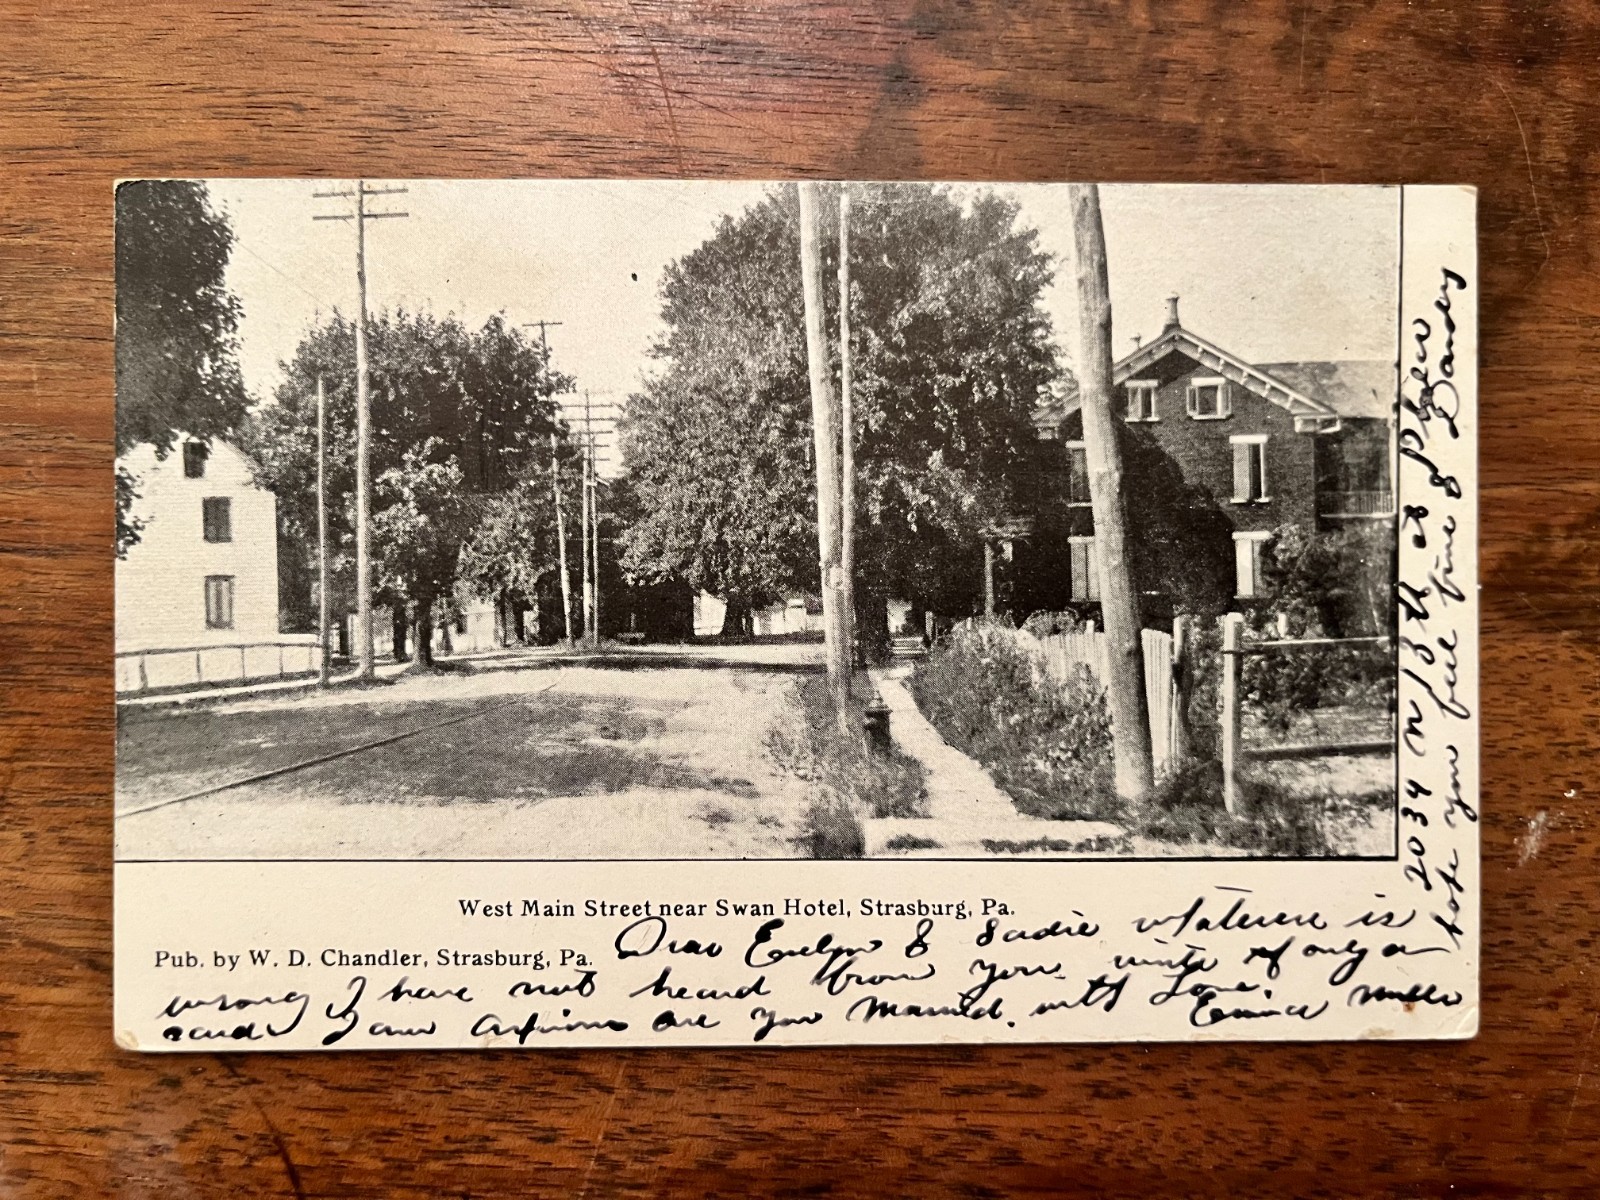 West Main Street near Swan Hotel, Strasburg, Pa.
Pub. by W. D. Chandler, Strasburg, Pa.
Dear Evelyn & Sadie whatever is
wrong I have not heard from you write if only a
card. I am are you married. with Love.
2034 N 13 th st Phila
hope you feel fine & Dandy